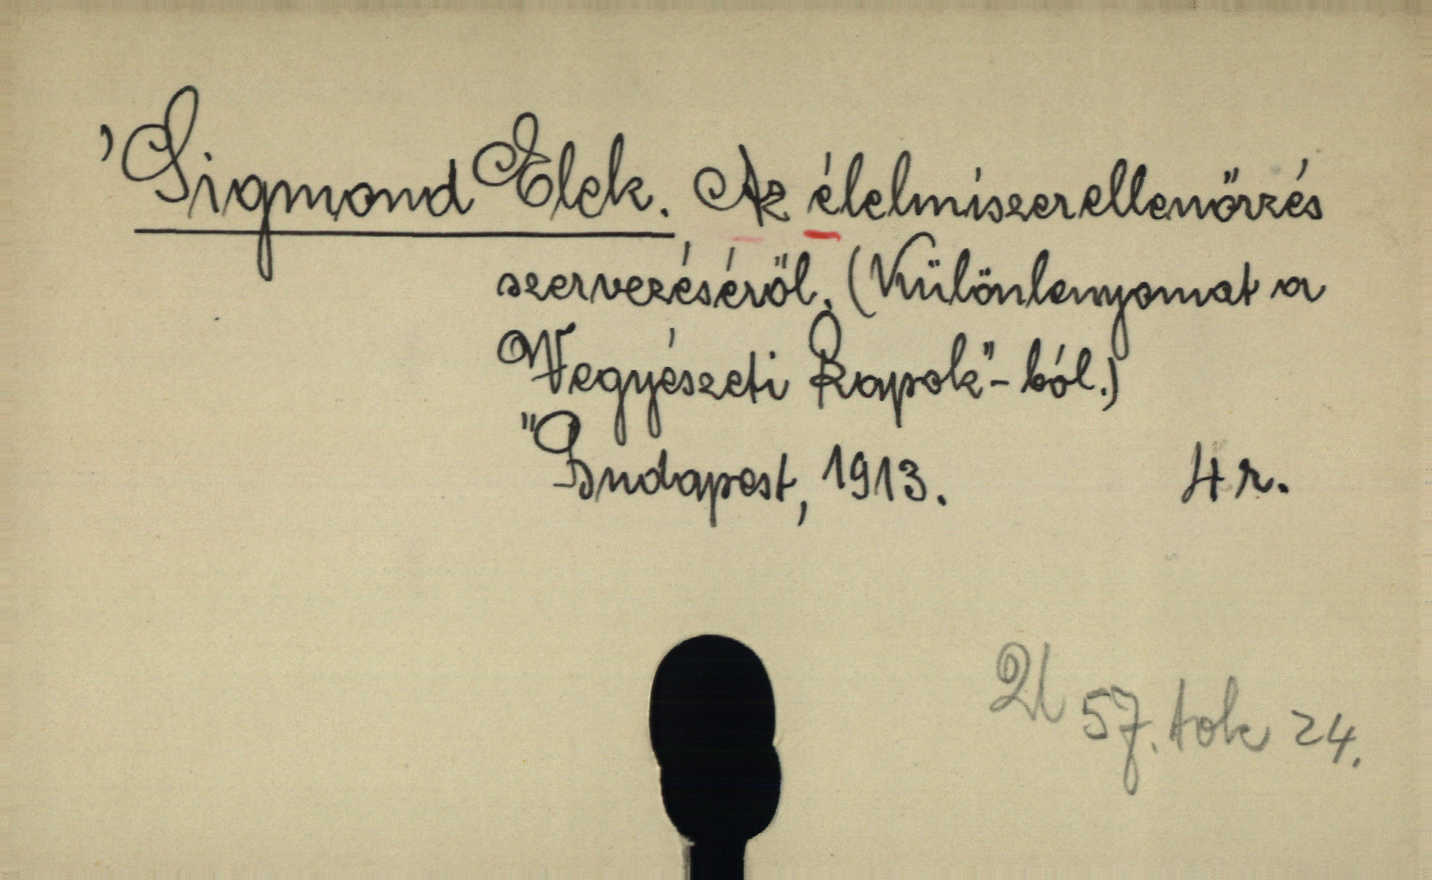 'Sigmond Elek. Az élelmiszerellenőrzés
szervezéséről. (Különlenyomat a
Vegyészeti Lapok"-ból.)
"Budapest, 1913. 4r.
57. tok 24.